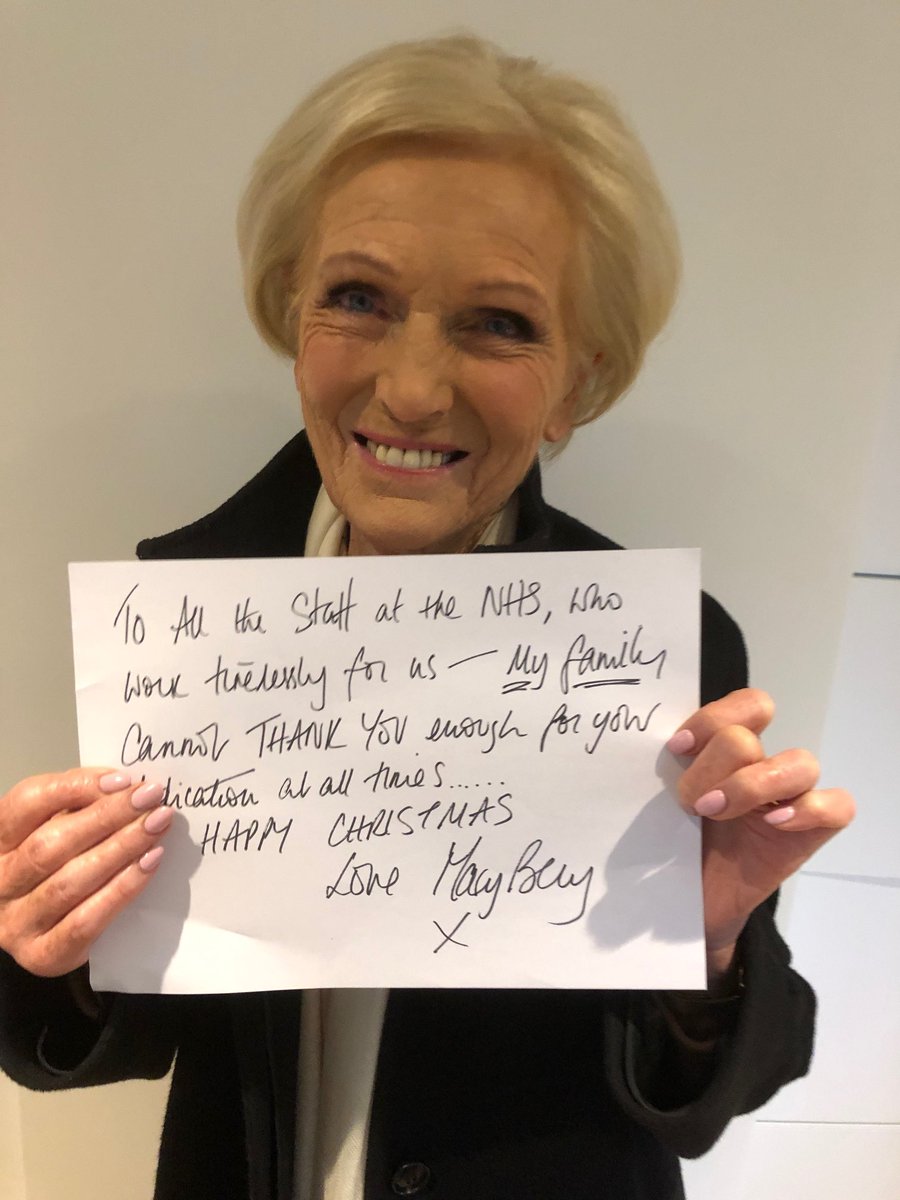 To All the Staff at the NHS, who
work tirelessly for us — My family
Cannot THANK YOU enough for your
dedication at all times......
HAPPY CHRISTMAS
Love Mary Berry
X